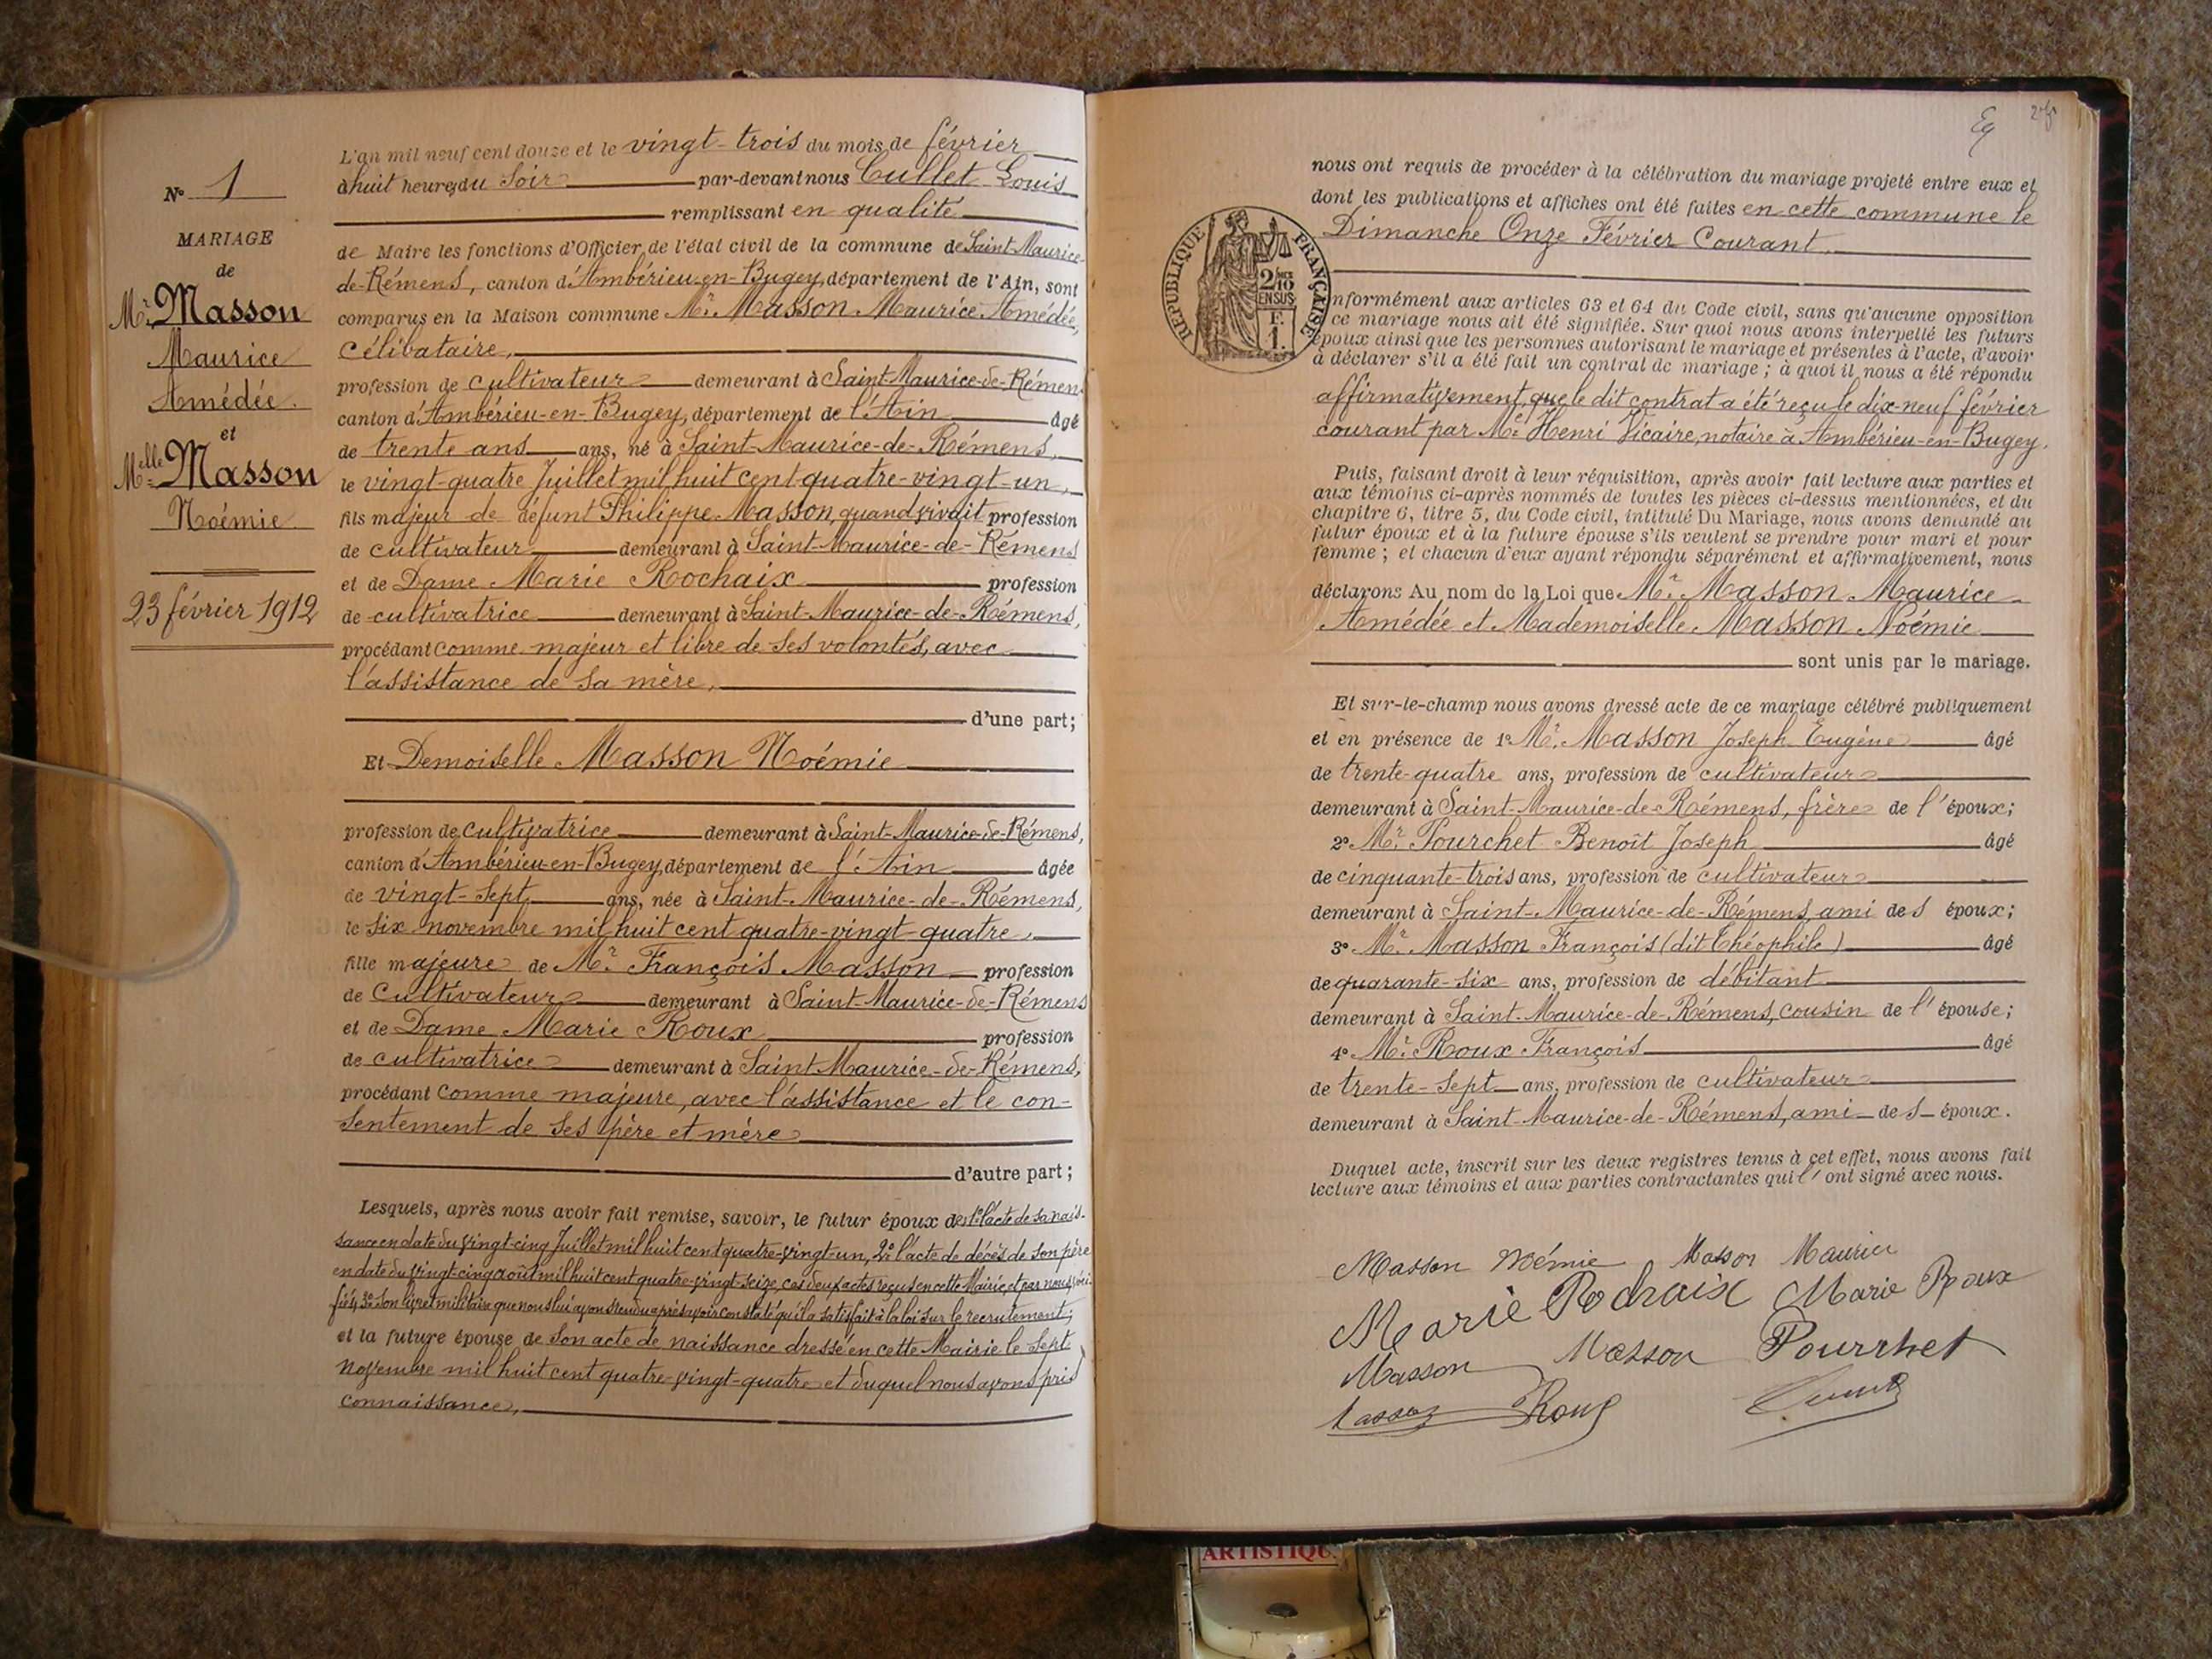 N° 1
MARIAGE
de
Mr. Masson
Maurice
Amédée.
et
Melle Masson
Noémie
23 février 1912
L'an mil neuf cent douze et le vingt-trois du mois de février
à huit heures du Soir par-devant nous Cullet Louis
remplissant en qualité
de Maire les fonctions d'Officier de l'état civil de la commune de Saint-Maurice-
de-Rémens, canton d'Ambérieu-en-Bugey, département de l'Ain, sont
comparus en la Maison commune Mr. Masson Maurice Amédée,
Célibataire,
profession de cultivateur demeurant à Saint-Maurice-de-Rémens
canton d'Ambérieu-en-Bugey, département de l'Ain âgé
de trente ans ans, né à Saint-Maurice-de-Rémens,
le vingt-quatre Juillet mil huit cent quatre-vingt-un,
fils majeur de défunt Philippe Masson, quand vivait profession
de cultivateur demeurant à Saint-Maurice-de-Rémens
et de Dame Marie Rochaix profession
de cultivatrice demeurant à Saint-Maurice-de-Rémens,
procédant comme majeur et libre de ses volontés, avec
l'assistance de sa mère,
d'une part;
Et Demoiselle Masson Noémie
profession de cultivatrice demeurant à Saint-Maurice-de-Rémens,
canton d'Ambérieu-en-Bugey, département de l'Ain âgée
de vingt-sept ans, née à Saint-Maurice-de-Rémens,
le six novembre mil huit cent quatre-vingt-quatre,
fille majeure de Mr. François Masson profession
de Cultivateur demeurant à Saint-Maurice-de-Rémens
et de Dame Marie Roux profession
de cultivatrice demeurant à Saint-Maurice-de-Rémens,
procédant comme majeure, avec l'assistance et le con-
sentement de ses père et mère
d'autre part;
Lesquels, après nous avoir fait remise, savoir, le futur époux de 1° l'acte de sa nais-
sance en date du vingt-cinq Juillet mil huit cent quatre-vingt-un, 2° l'acte de décès de son père
en date du vingt-cinq août mil huit cent quatre-vingt-seize, ces deux actes reçus en cette Mairie et par nous véri-
fiés, 3° son livret militaire que nous lui avons rendu après avoir constaté qu'il a satisfait à la loi sur le recrutement;
et la future épouse de son acte de naissance dressé en cette Mairie le sept
novembre mil huit cent quatre-vingt-quatre et duquel nous avons pris
connaissance,
nous ont requis de procéder à la célébration du mariage projeté entre eux et
dont les publications et affiches ont été faites en cette commune le
Dimanche Onze Février Courant.
RÉPUBLIQUE FRANÇAISE
2/10
EN SUS
F.
1.
nformément aux articles 63 et 64 du Code civil, sans qu'aucune opposition
ce mariage nous ait été signifiée. Sur quoi nous avons interpellé les futurs
époux ainsi que les personnes autorisant le mariage et présentes à l'acte, d'avoir
à déclarer s'il a été fait un contrat de mariage; à quoi il nous a été répondu
affirmativement, que le dit contrat a été reçu le dix-neuf février
courant par Me Henri Vicaire, notaire à Ambérieu-en-Bugey.
Puis, faisant droit à leur réquisition, après avoir fait lecture aux parties et
aux témoins ci-après nommés de toutes les pièces ci-dessus mentionnées, et du
chapitre 6, titre 5, du Code civil, intitulé Du Mariage, nous avons demandé au
futur époux et à la future épouse s'ils veulent se prendre pour mari et pour
femme; et chacun d'eux ayant répondu séparément et affirmativement, nous
déclarons Au nom de la Loi que Mr. Masson Maurice
Amédée et Mademoiselle Masson Noémie
sont unis par le mariage.
Et sur-le-champ nous avons dressé acte de ce mariage célébré publiquement
et en présence de 1° Mr. Masson Joseph Eugène âgé
de trente-quatre ans, profession de cultivateur
demeurant à Saint-Maurice-de-Rémens, frère de l'époux;
2° Mr. Pourchet Benoît Joseph âgé
de cinquante-trois ans, profession de cultivateur
demeurant à Saint-Maurice-de-Rémens, ami des époux;
3° Mr. Masson François (dit Théophile) âgé
de quarante-six ans, profession de débitant
demeurant à Saint-Maurice-de-Rémens, cousin de l'épouse;
4° Mr. Roux François âgé
de trente-sept ans, profession de cultivateur
demeurant à Saint-Maurice-de-Rémens, ami des époux.
Duquel acte, inscrit sur les deux registres tenus à cet effet, nous avons fait
lecture aux témoins et aux parties contractantes qui l'ont signé avec nous.
Masson Noémie Masson Maurice
Marie Rochaix Marie Roux
Masson Masson Pourchet
Masson Roux
ARTISTIQU